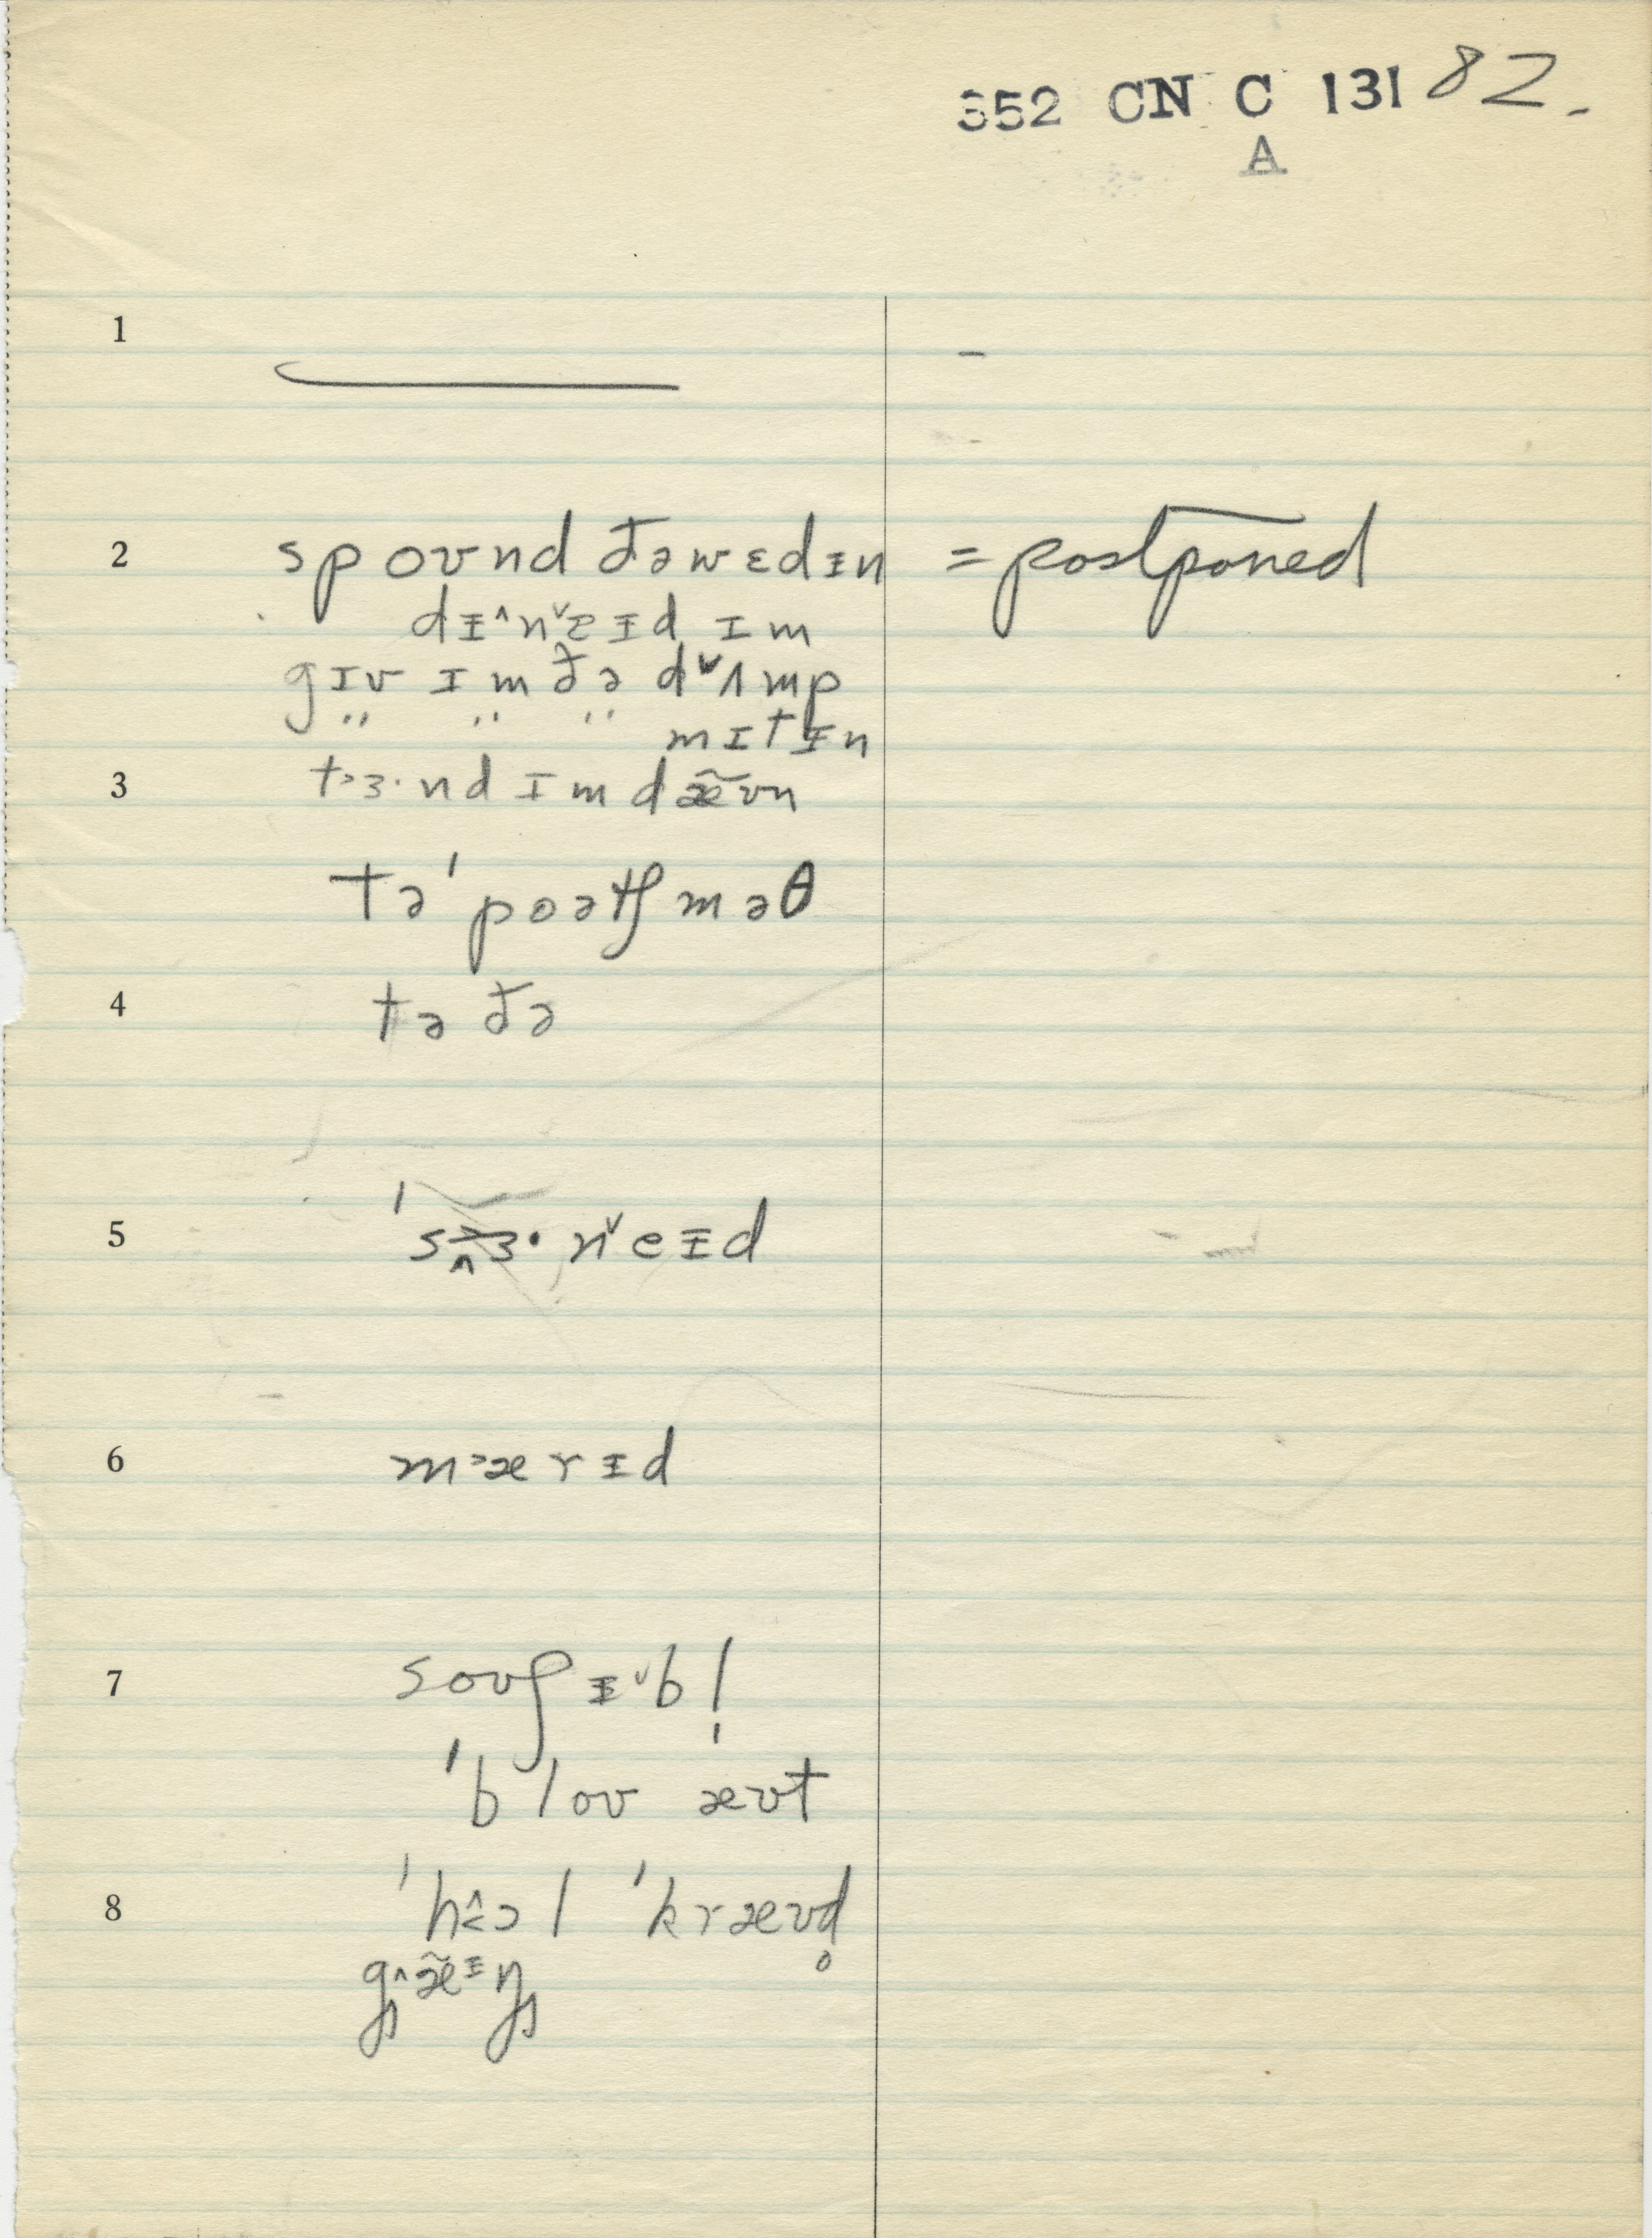 352 CN C 131 82.
A
1 –
2 spoʊnd ðəwɛdɪ̵n = postponed
dɪ̵˄n˅eɪ̵d ɪm
gɪv ɪm ðə d˅ʌmp
" " " mɪtɪ̵n
3 t˃ɜ·nd ɪm dæ̃ʊn
tə ˈpoətʃməθ
4 tə ðə
5 ˈs˃ɜ· n˅eɪ̵d
6 m˃ærɪ̵d
7 soʊʃɪ̵˅bl̩
ˈbloʊ æʊt
8 ˈhɔl ˈkræʊd̥
gæ̃ɪ̵ŋ